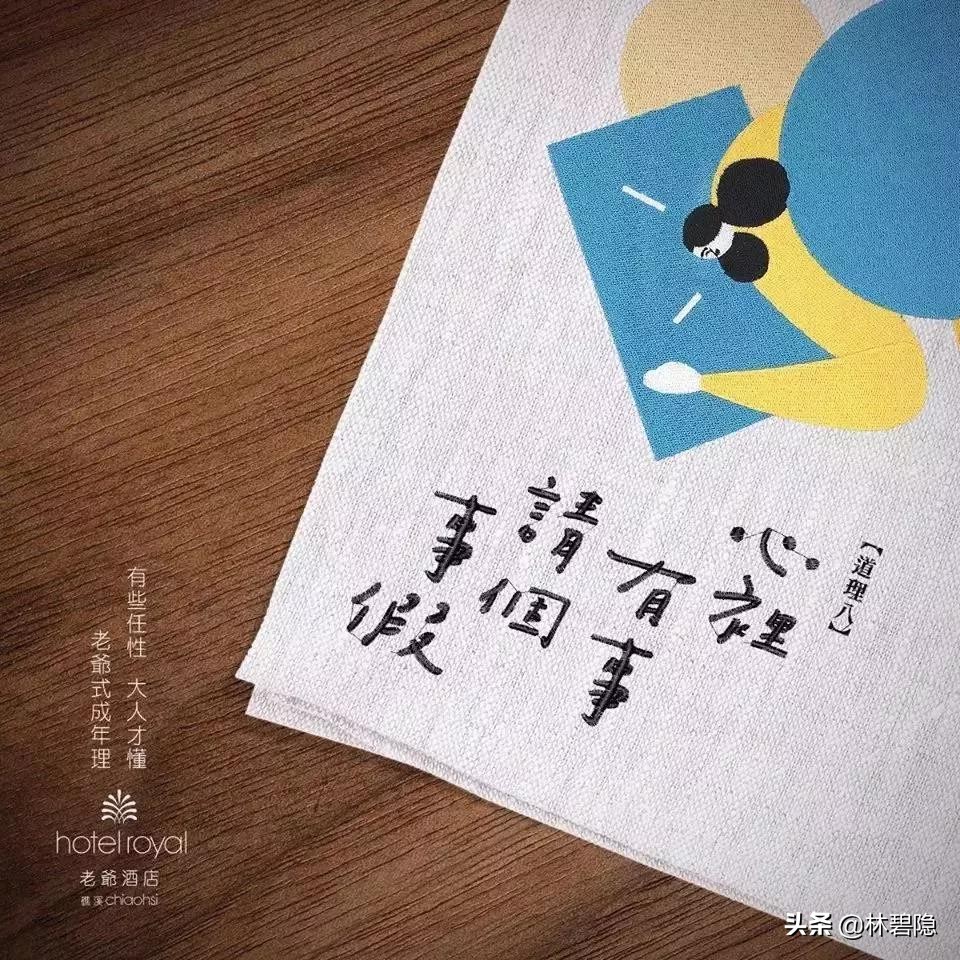 【道理八】
心裡
有事
請個
事假
有些任性 大人才懂
老爺式成年理
hotel royal
老爺酒店
礁溪chiaohsi
头条 @林碧隐